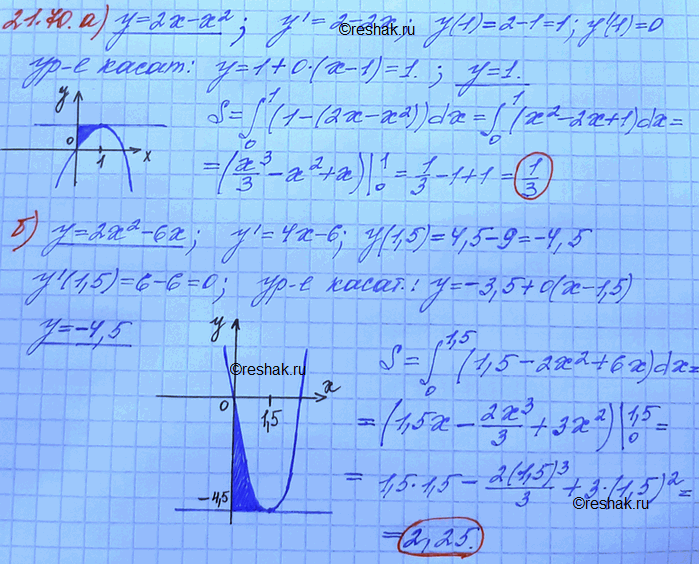 21.70. а) y=2x-x²; y'=2-2x; y(1)=2-1=1; y'(1)=0
©reshak.ru
ур-е касат: y=1+0·(x-1)=1. ; y=1.
y
0
1
x
S=∫₀¹(1-(2x-x²))dx=∫₀¹(x²-2x+1)dx=
=(x³/3-x²+x)|₀¹=1/3-1+1=1/3
б) y=2x²-6x; y'=4x-6; y(1,5)=4,5-9=-4,5
y'(1,5)=6-6=0; ур-е касат.: y=-3,5+0(x-1,5)
y=-4,5
y
©reshak.ru
x
0
1,5
-4,5
S=∫₀^1,5(1,5-2x²+6x)dx=
=(1,5x-2x³/3+3x²)|₀^1,5=
=1,5·1,5-2(1,5)³/3+3·(1,5)²=
©reshak.ru
=2,25.